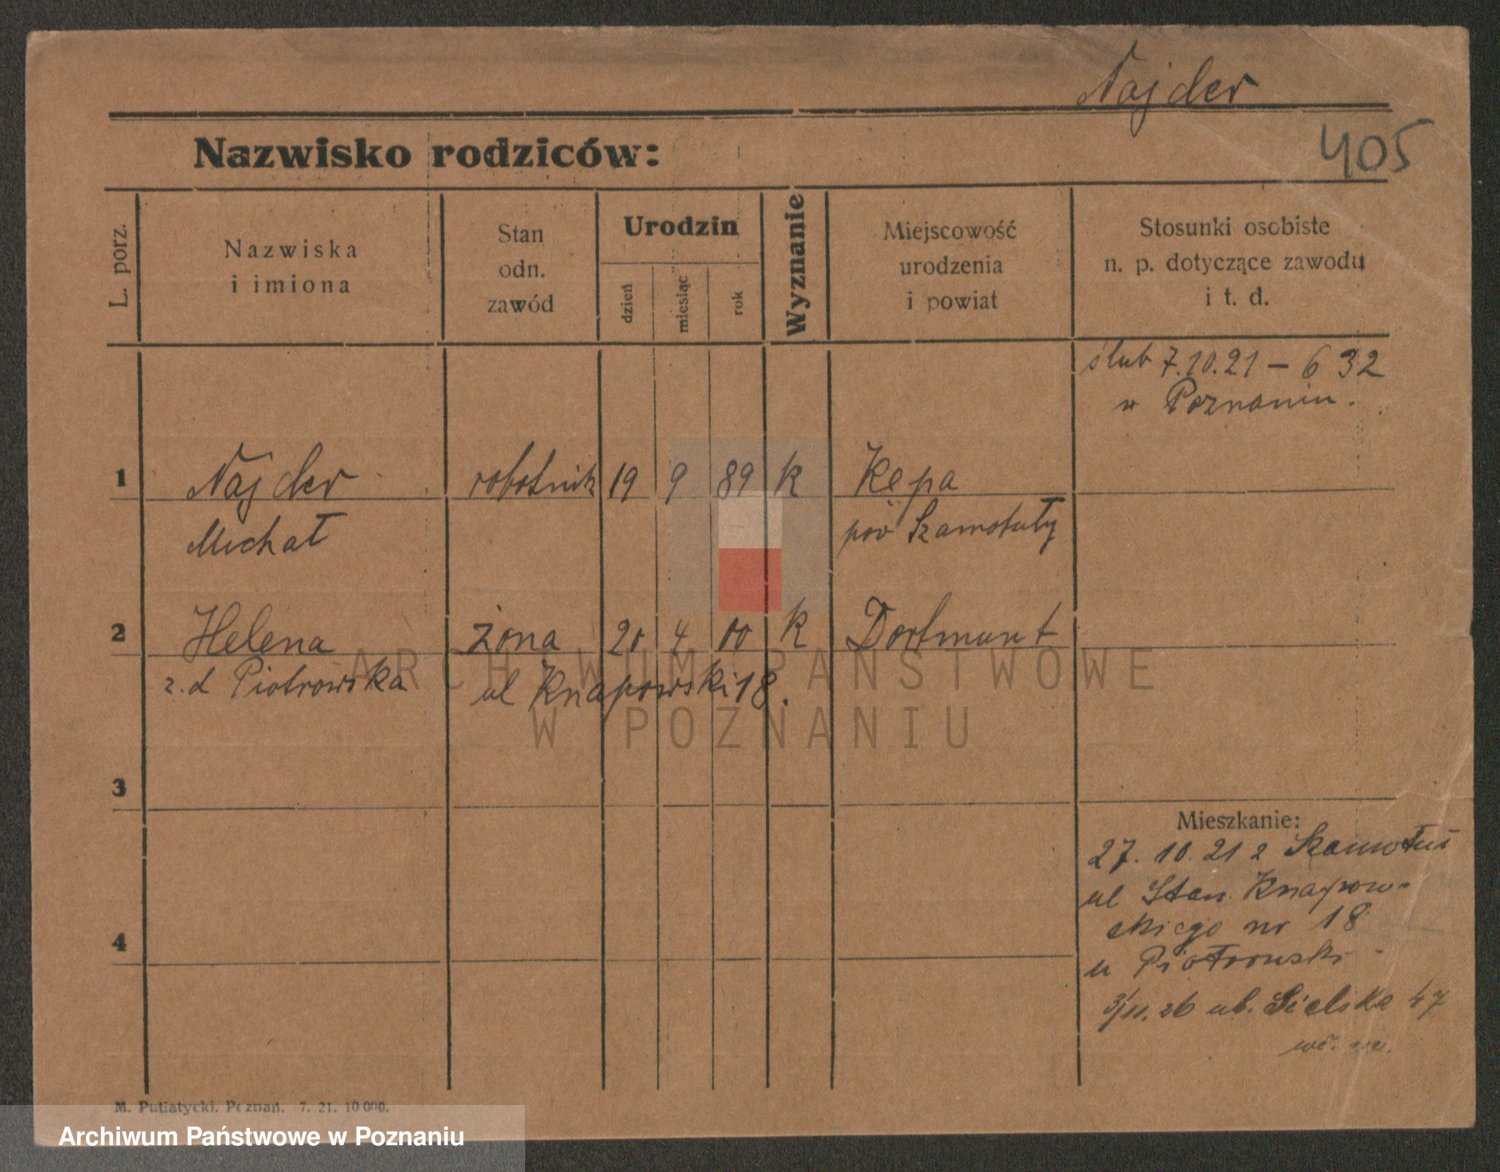 Najder
Nazwisko rodziców:
405
L. porz.
Nazwiska
i imiona
Stan
odn.
zawód
Urodzin
dzień
miesiąc
rok
Wyznanie
Miejscowość
urodzenia
i powiat
Stosunki osobiste
n. p. dotyczące zawodu
i t. d.
ślub 7.10.21 – 632
w Poznaniu.
1 Najder robotnik 19 9 89 k Kępa
Michał pow Szamotuły
2 Helena żona 20 4 00 k Dortmunt
z. d Piotrowska ul Knapowski 18.
ARCHIWUM PAŃSTWOWE
W POZNANIU
3
Mieszkanie:
27. 10. 21 z
ul Stan. Knapow-
skiego nr 18
u Piotrowski
4
3/11. 26 ul. Sielska 47
M. Putiatycki. Poznań. 7. 21. 10 000.
Archiwum Państwowe w Poznaniu